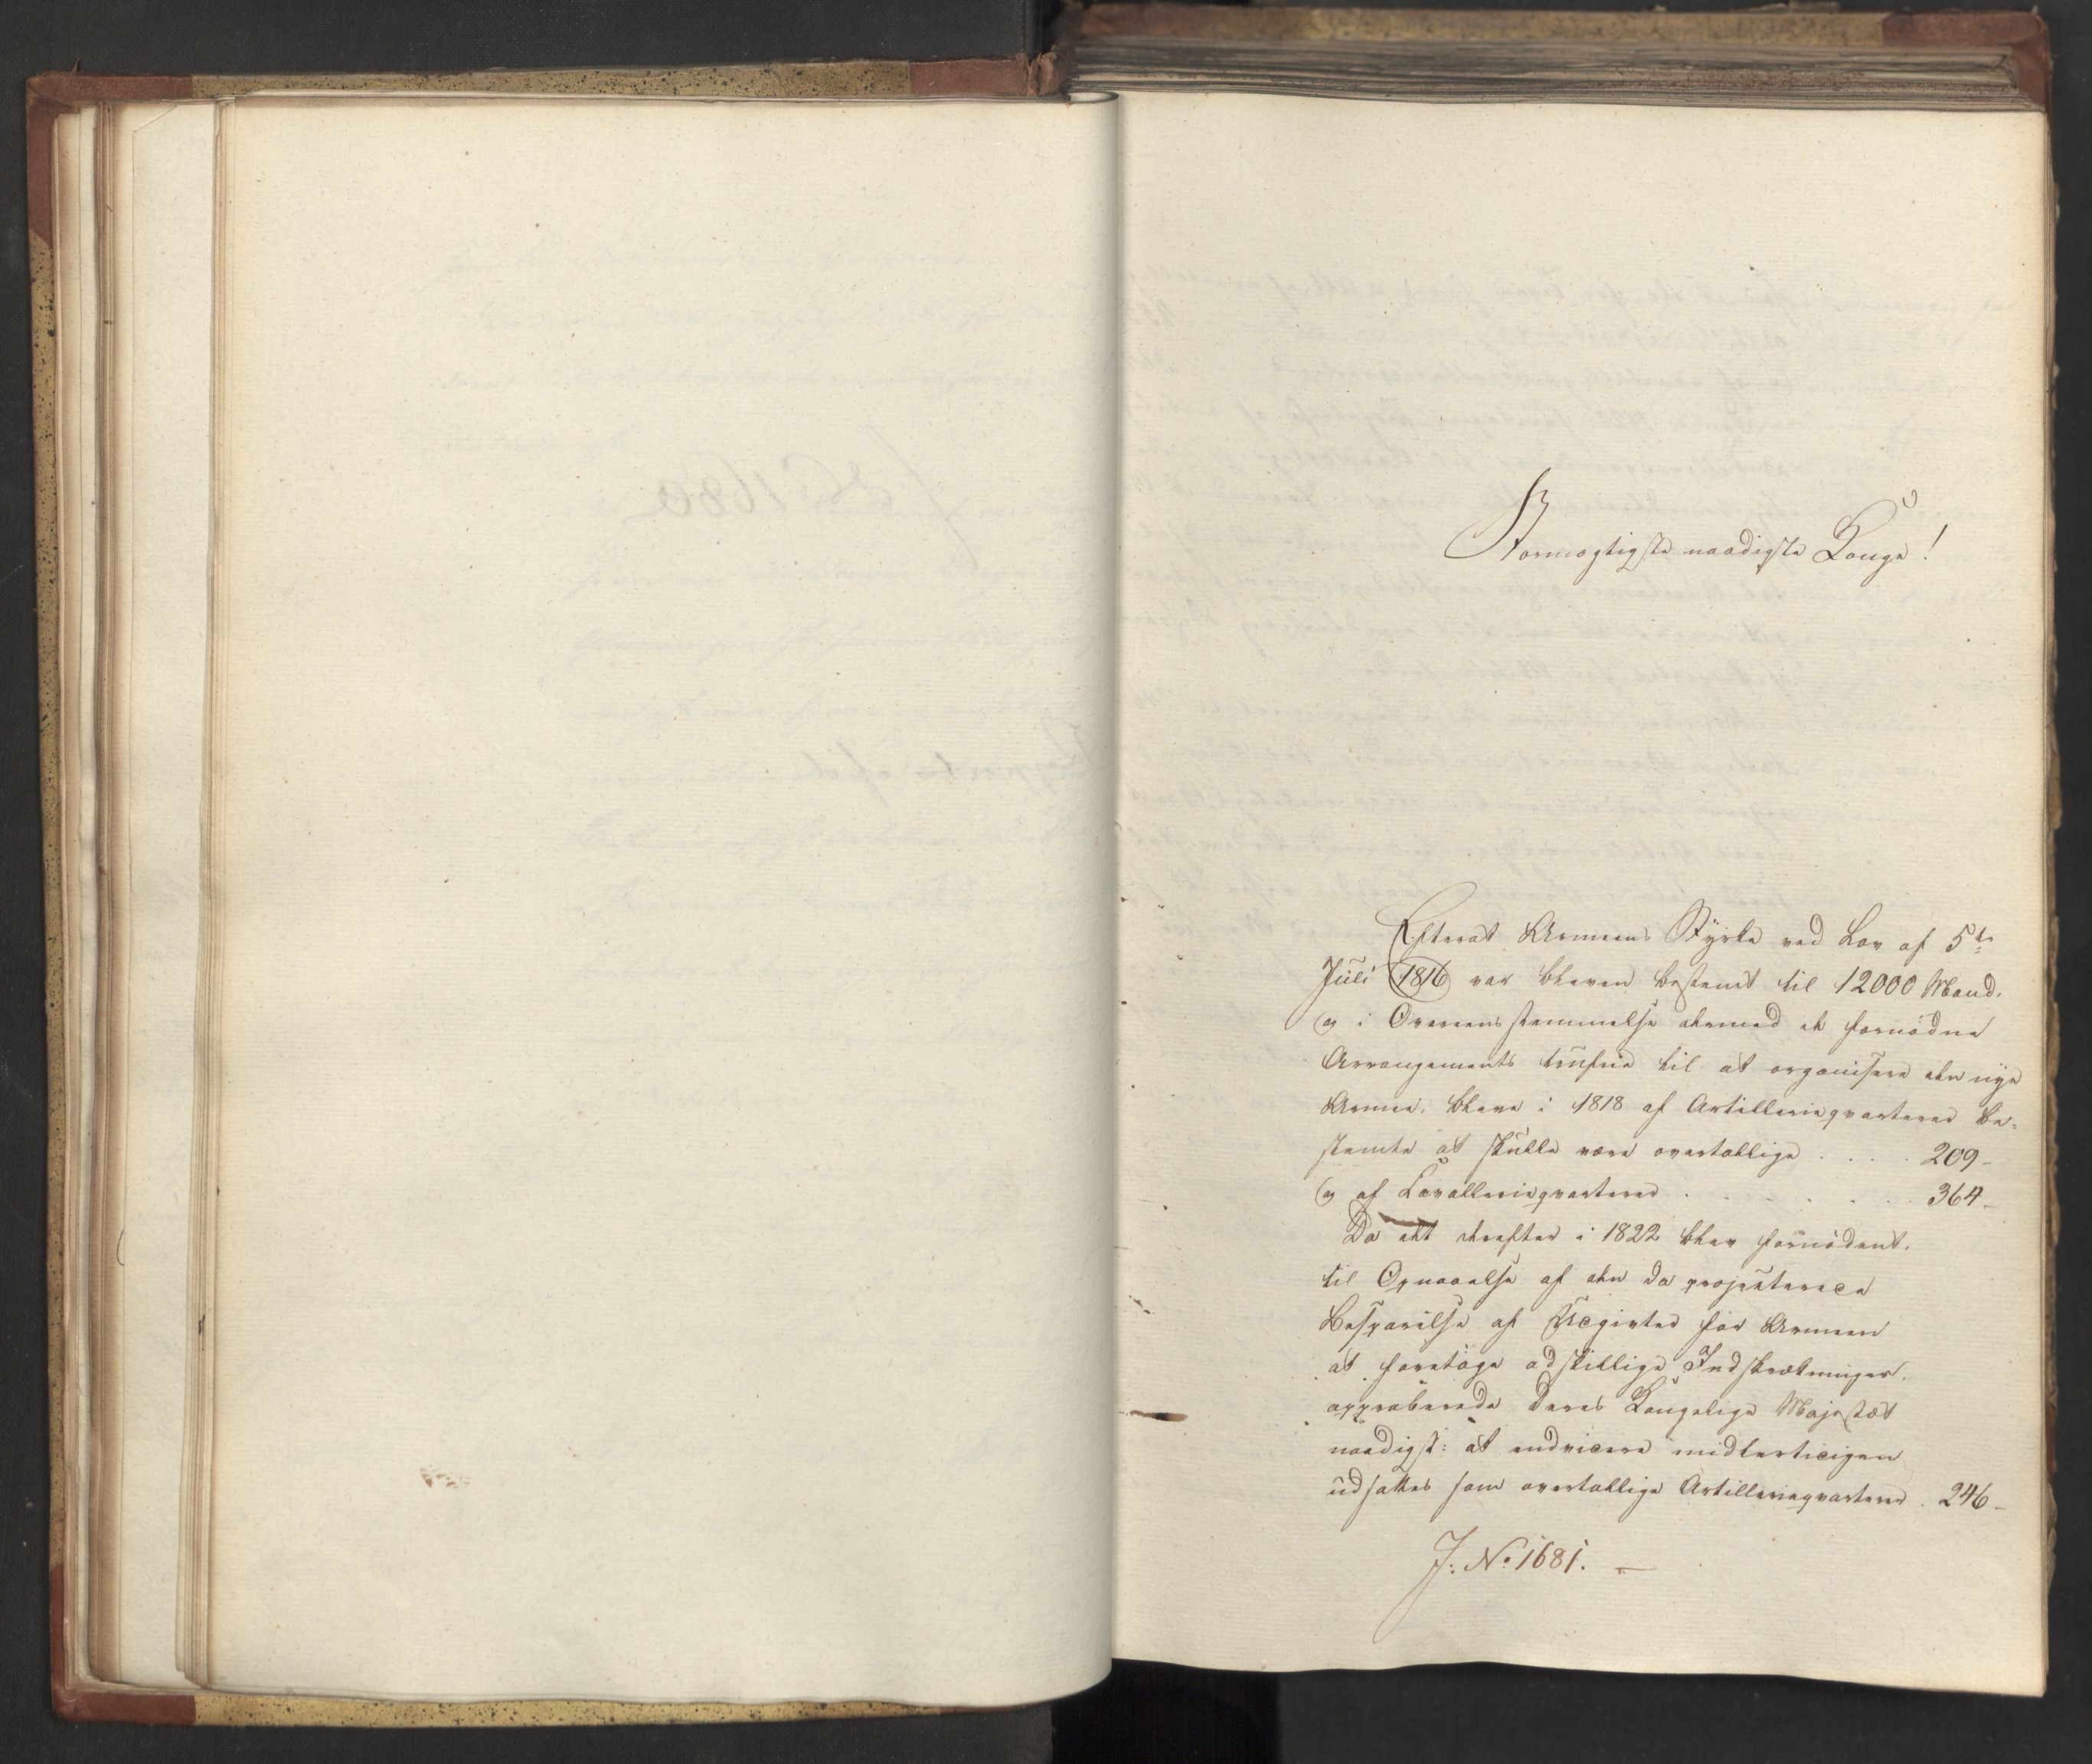 Stormægtigste naadigste Konge!
Efterat Armeens Styrke ved Lov af 5te
Juli 1816 var bleven bestemt til 12000 Mand,
og i Overeensstemmelse dermed de fornødne
Arrangements trufne til at organisere den nye
Armee, bleve i 1818 af Artillerieqvarterer be-
stemte at skulle være overtallige . . . . 209 –
og af Cavallerieqvarterer . . . . . . 364 –
Da det derefter i 1822 blev fornødent,
til Opnaaelse af den da projekterede
Besparelse af Udgivter for Armeen
at foretage adskillige Indskrænkninger,
approberede Deres Kongelige Majestæt
naadigst: at endvidere midlertidigen
udsattes som overtallige Artillerieqvarterer . 246 –
J: No 1681. –